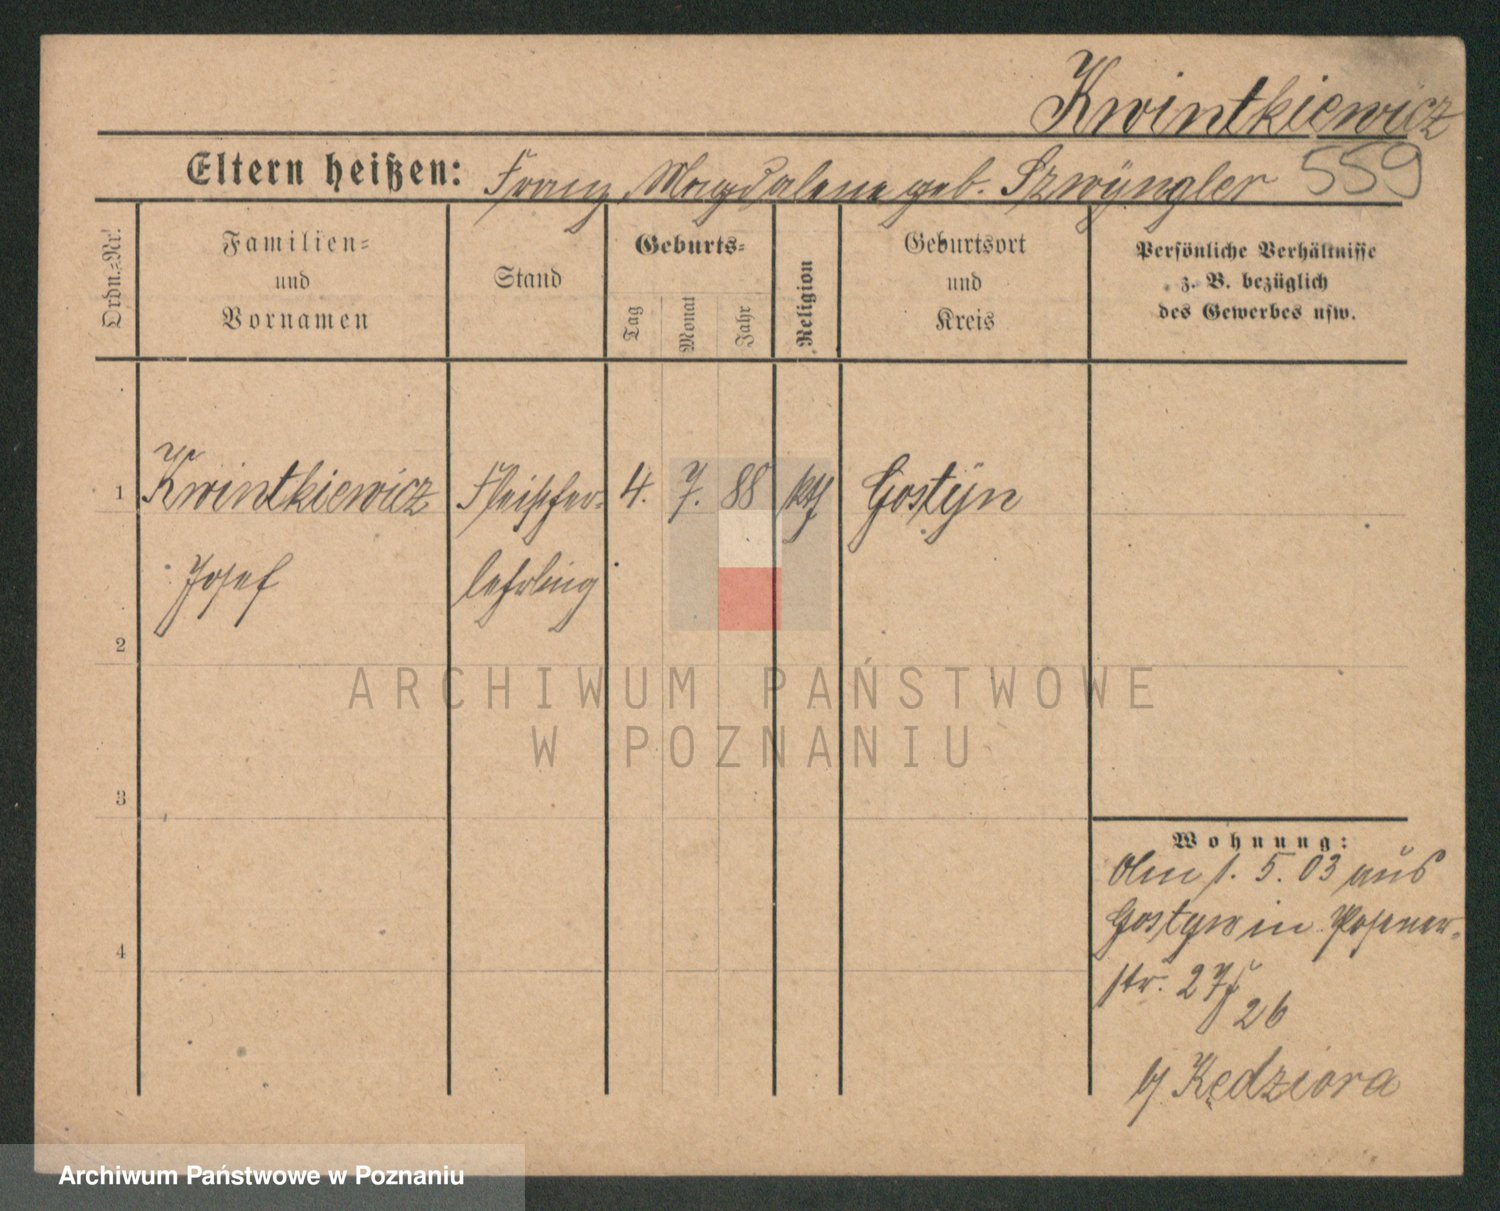 Kwintkiewicz
Eltern heißen: Franz, Magdalene geb. Szwÿngler 559
Ordn.-Nr.
Familien-
und
Vornamen
Stand
Geburts-
Tag
Monat
Jahr
Religion
Geburtsort
und
Kreis
Persönliche Verhältnisse
z. B. bezüglich
des Gewerbes usw.
1 Kwintkiewicz Fleischer- 4. 7. 88 kth Gostÿn
Josef lehrling
2
ARCHIWUM PAŃSTWOWE
W POZNANIU
3
4
Wohnung:
1. 5. 03 aus
Gostyn in Posener-
str. 27
26
b/ Kędziora
Archiwum Państwowe w Poznaniu